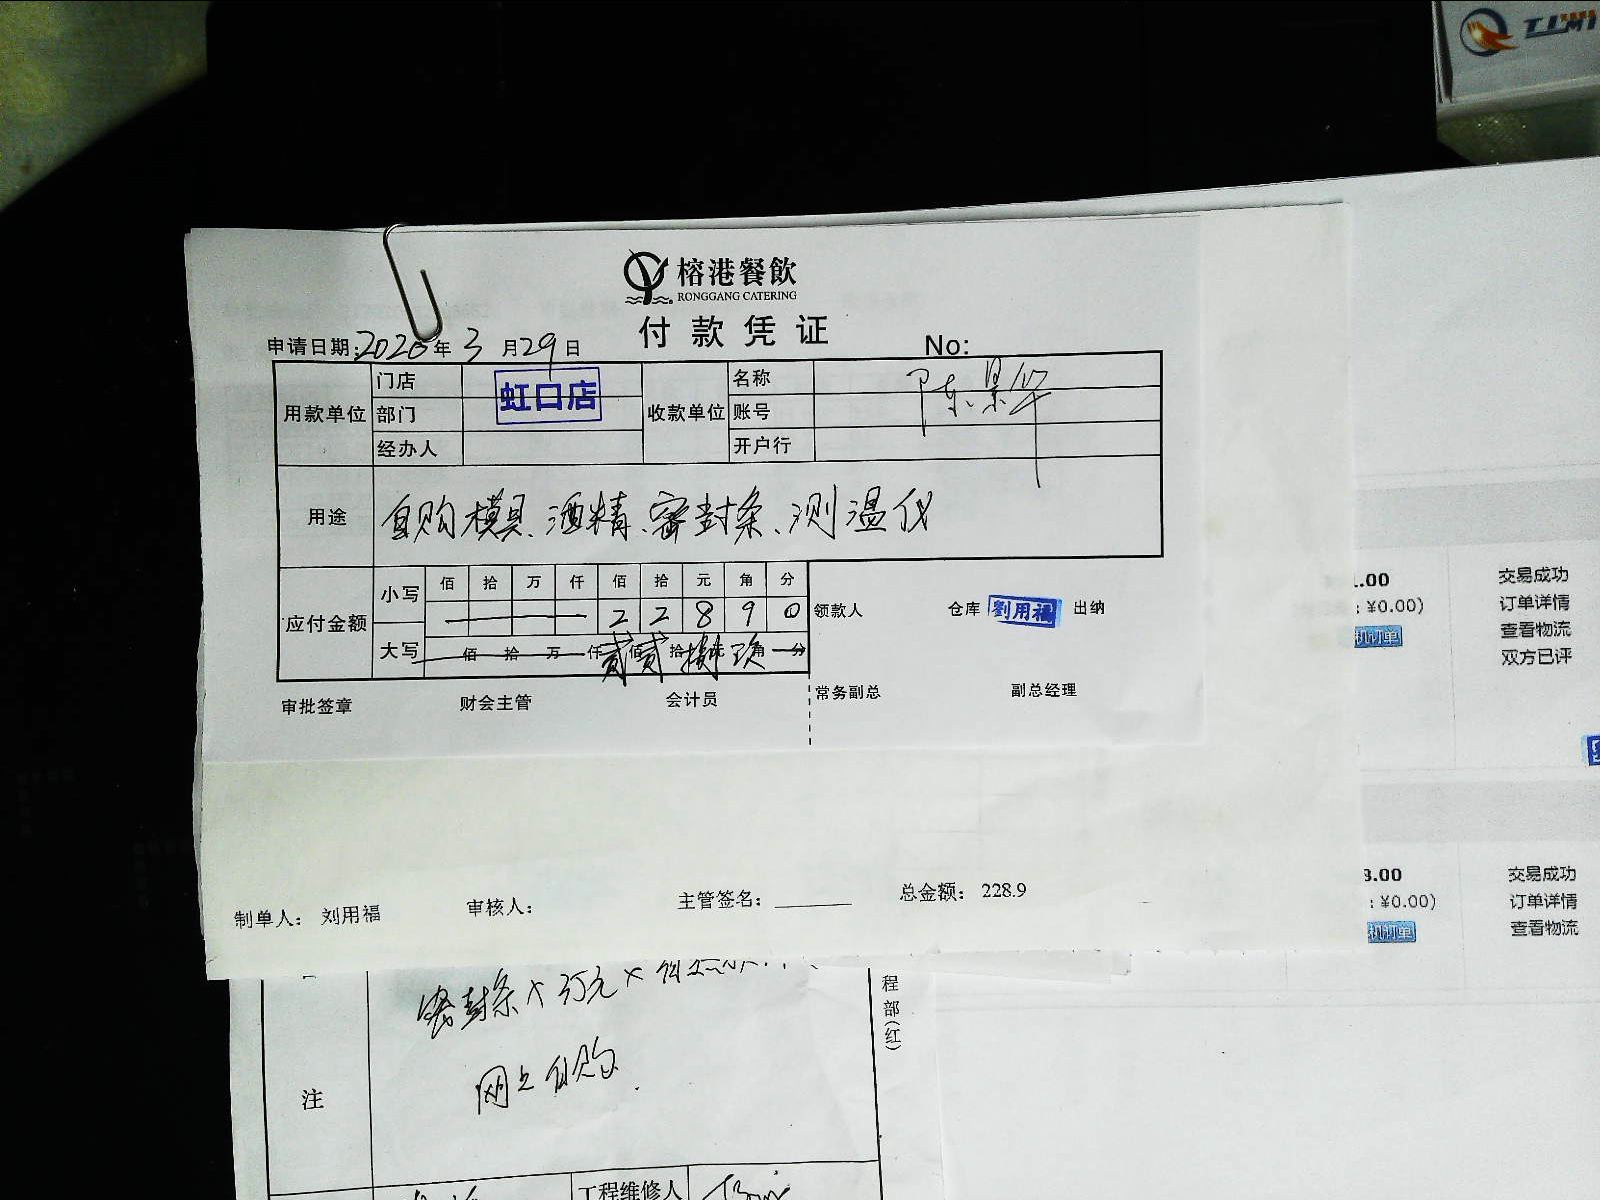 TIMI
榕港餐飲
RONGGANG CATERING
付款凭证
申请日期:2020年3月29日
No:
用款单位 门店 虹口店 收款单位 名称 陈景华
部门 账号
经办人 开户行
用途 自购模具、酒精、密封条、测温仪
应付金额 小写 佰 拾 万 仟 佰 拾 元 角 分
2 2 8 9 0
大写 佰 拾 万 仟 贰 佰 贰 拾 捌 元 玖 角 分
领款人 仓库 劉用福 出纳
审批签章 财会主管 会计员 常务副总 副总经理
制单人: 刘用福 审核人: 主管签名: 总金额: 228.9
.00 交易成功
: ¥0.00) 订单详情
查看物流
双方已评
8.00 交易成功
: ¥0.00) 订单详情
查看物流
密封条
网上自购
注
程部(红)
工程维修人